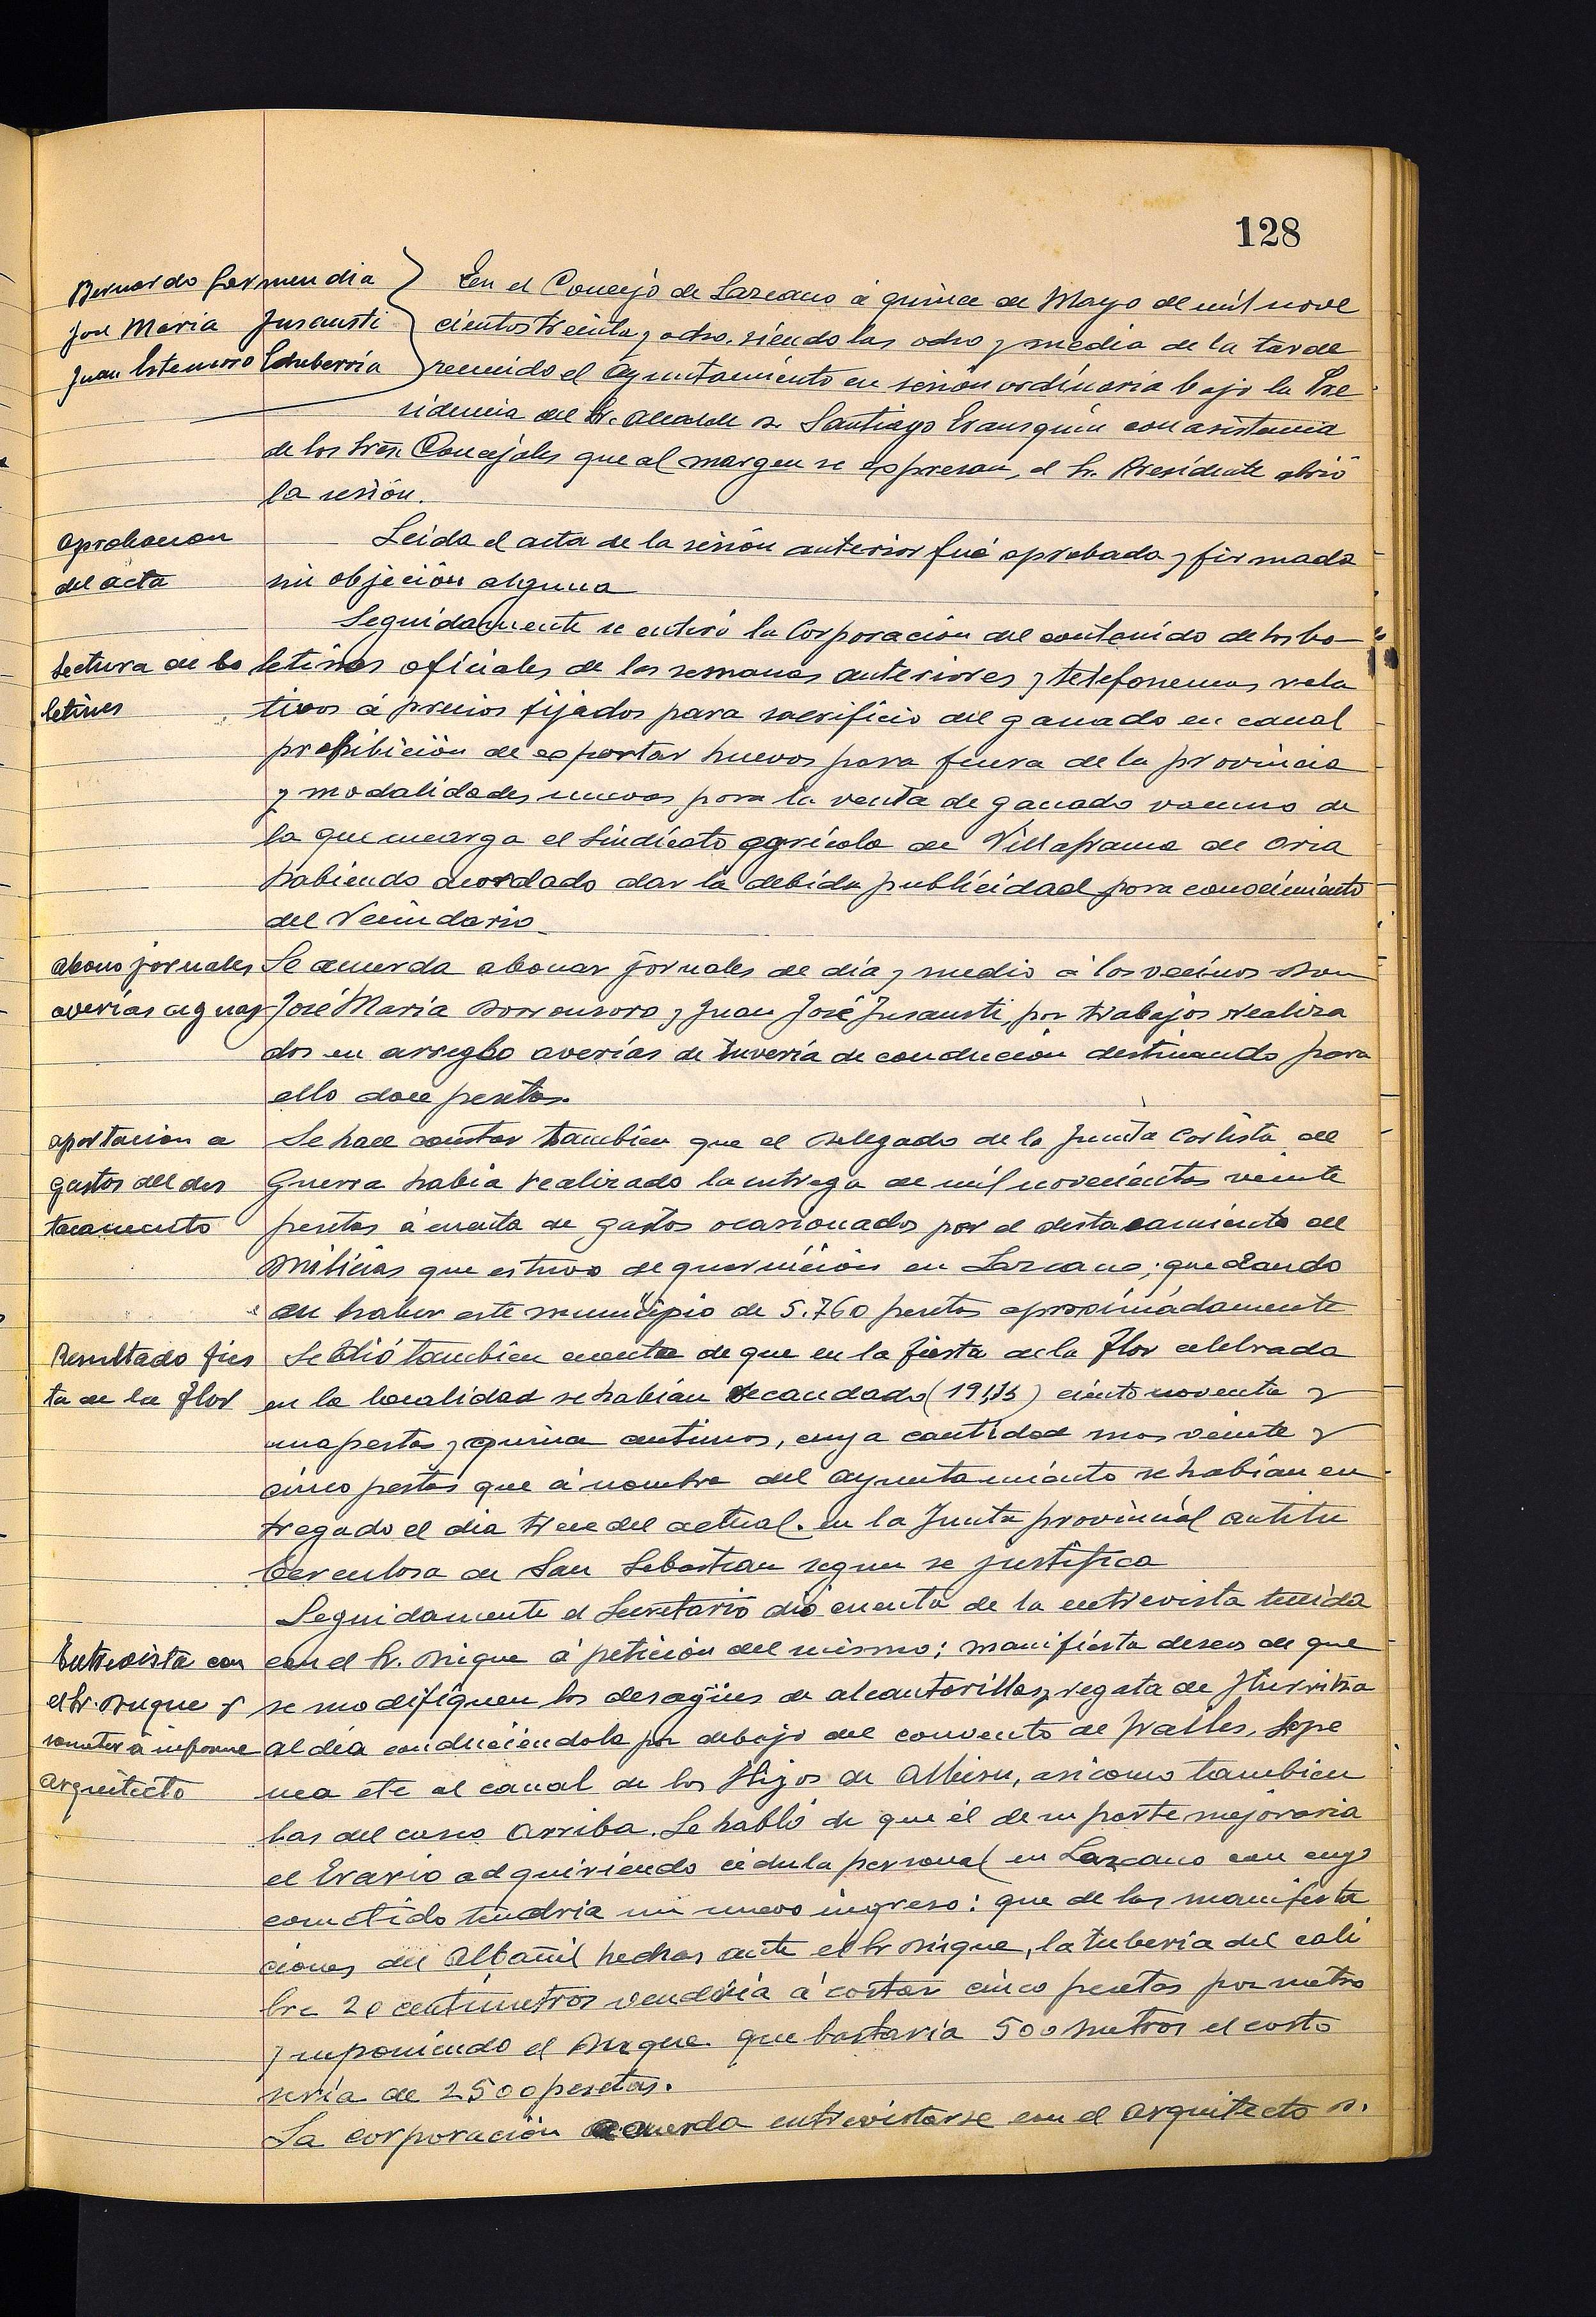 128
Bernardo Garmendia
José Maria Jusausti
Juan Estensoro Echeberria
En el Concejo de Lazcano á quince de Mayo de mil nove
cientos treinta y ocho, siendo las ocho y media de la tarde
reunido el Ayuntamiento en sesión ordinaria bajo la Pre
sidencia del Sr. Alcalde D. Santiago Erausquin con asistencia
de los Sres. Concejales que al margen se expresan, el Sr. Presidente abrió
la sesión.
Aprobacion
del acta
Leida el acta de la sesión anterior fué aprobada y firmada
sin objeción alguna
Seguidamente se enteró la Corporación del contenido de los bo-
Lectura de bo
letines
letines oficiales de las semanas anteriores y telefonemas rela
tivos á precios fijados para sacrificio del ganado en canal
prohibición de exportar huevos para fuera de la provincia
y modalidades nuevas para la venta de ganado vacuno de
la que encarga el Sindicato agrícola de Villafranca de Oria
habiendo acordado dar la debida publicidad para conocimiento
del Vecindario.
Abono jornales
averías aguas
Se acuerda abonar jornales de día y medio á los vecinos Don
José María Dorronsoro y Juan José Jusausti, por trabajos realiza
dos en arreglo averías de tuvería de conducción destinando para
ello doce pesetas.
Aportacion a
gastos del des
tacamento
Se hace constar tambien que el Delegado de la Junta Carlista de
Guerra había realizado la entrega de mil novecientas veinte
pesetas á cuenta de gastos ocasionados por el destacamiento de
Milicias que estuvo de guarnición en Lazcano; quedando
en haber este municipio de 5.760 pesetas aproximadamente
Resultado fies
ta de la Flor
Se dió tambien cuenta de que en la fiesta de la Flor celebrada
en la localidad se habían recaudado (191,15) ciento noventa y
una pesetas y quince centimos, cuya cantidad mas veinte y
cinco pestas que á nombre del Ayuntamiento se habían en
tregado el dia trece del actual. en la Junta provincial antitu
berculosa de San Sebastian segun se justifica
Seguidamente el Secretario dió cuenta de la entrevista tenida
Entrevista con
el Sr. Duque y
someter á informe
Arquitecto
con el Sr. Duque á petición del mismo; manifiesta deseos de que
se modifiquen los desagües de alcantarillas y regata de Iturritza
aldea conduciéndola por debajo del convento de frailes,
etc al canal de los Hijos de Albisu, asicomo tambien
las del casco Arriba. Se habló de que él de su parte mejoraria
el Erario adquiriendo cédula personal en Lazcano con cuyo
cometido tendria un nuevo ingreso: que de las manifesta
ciones del Albañil hechas ante el Sr Duque, la tuberia del cali
bre 20 centimetros vendría á costar cinco pesetas por metro
y suponiendo el Duque que bastaría 500 metros el costo
sería de 2500 pesetas.
La corporación acuerda entrevistarse con el Arquitecto D.